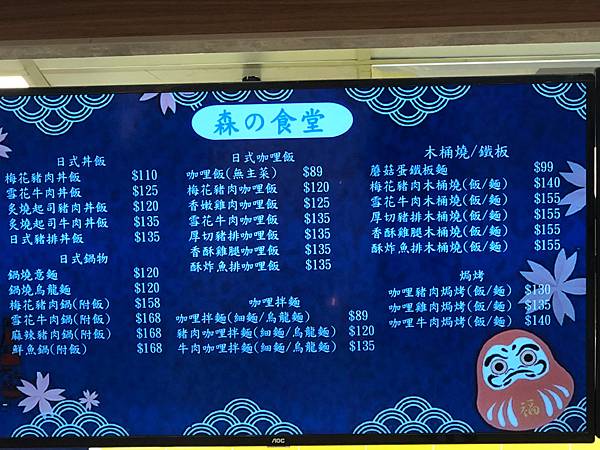 森の食堂
日式丼飯
梅花豬肉丼飯 $110
雪花牛肉丼飯 $125
炙燒起司豬肉丼飯 $135
炙燒起司牛肉丼飯 $135
日式豬排丼飯 $135
日式鍋物
鍋燒意麵 $120
鍋燒烏龍麵 $120
梅花豬肉鍋(附飯) $158
雪花牛肉鍋(附飯) $168
麻辣豬肉鍋(附飯) $168
鮮魚鍋(附飯) $168
日式咖哩飯
咖哩飯(無主菜) $89
梅花豬肉咖哩飯 $120
香嫩雞肉咖哩飯 $125
雪花牛肉咖哩飯 $135
厚切豬排咖哩飯 $135
香酥雞腿咖哩飯 $135
酥炸魚排咖哩飯 $135
咖哩拌麵
咖哩拌麵(細麵/烏龍麵) $89
豬肉咖哩拌麵(細麵/烏龍麵) $120
牛肉咖哩拌麵(細麵/烏龍麵) $135
木桶燒/鐵板
蘑菇蛋鐵板麵 $99
梅花豬肉木桶燒(飯/麵) $140
雪花牛肉木桶燒(飯/麵) $155
厚切豬排木桶燒(飯/麵) $155
香酥雞腿木桶燒(飯/麵) $155
酥炸魚排木桶燒(飯/麵) $155
焗烤
咖哩豬肉焗烤(飯/麵) $130
咖哩雞肉焗烤(飯/麵) $135
咖哩牛肉焗烤(飯/麵) $140
福
AOC